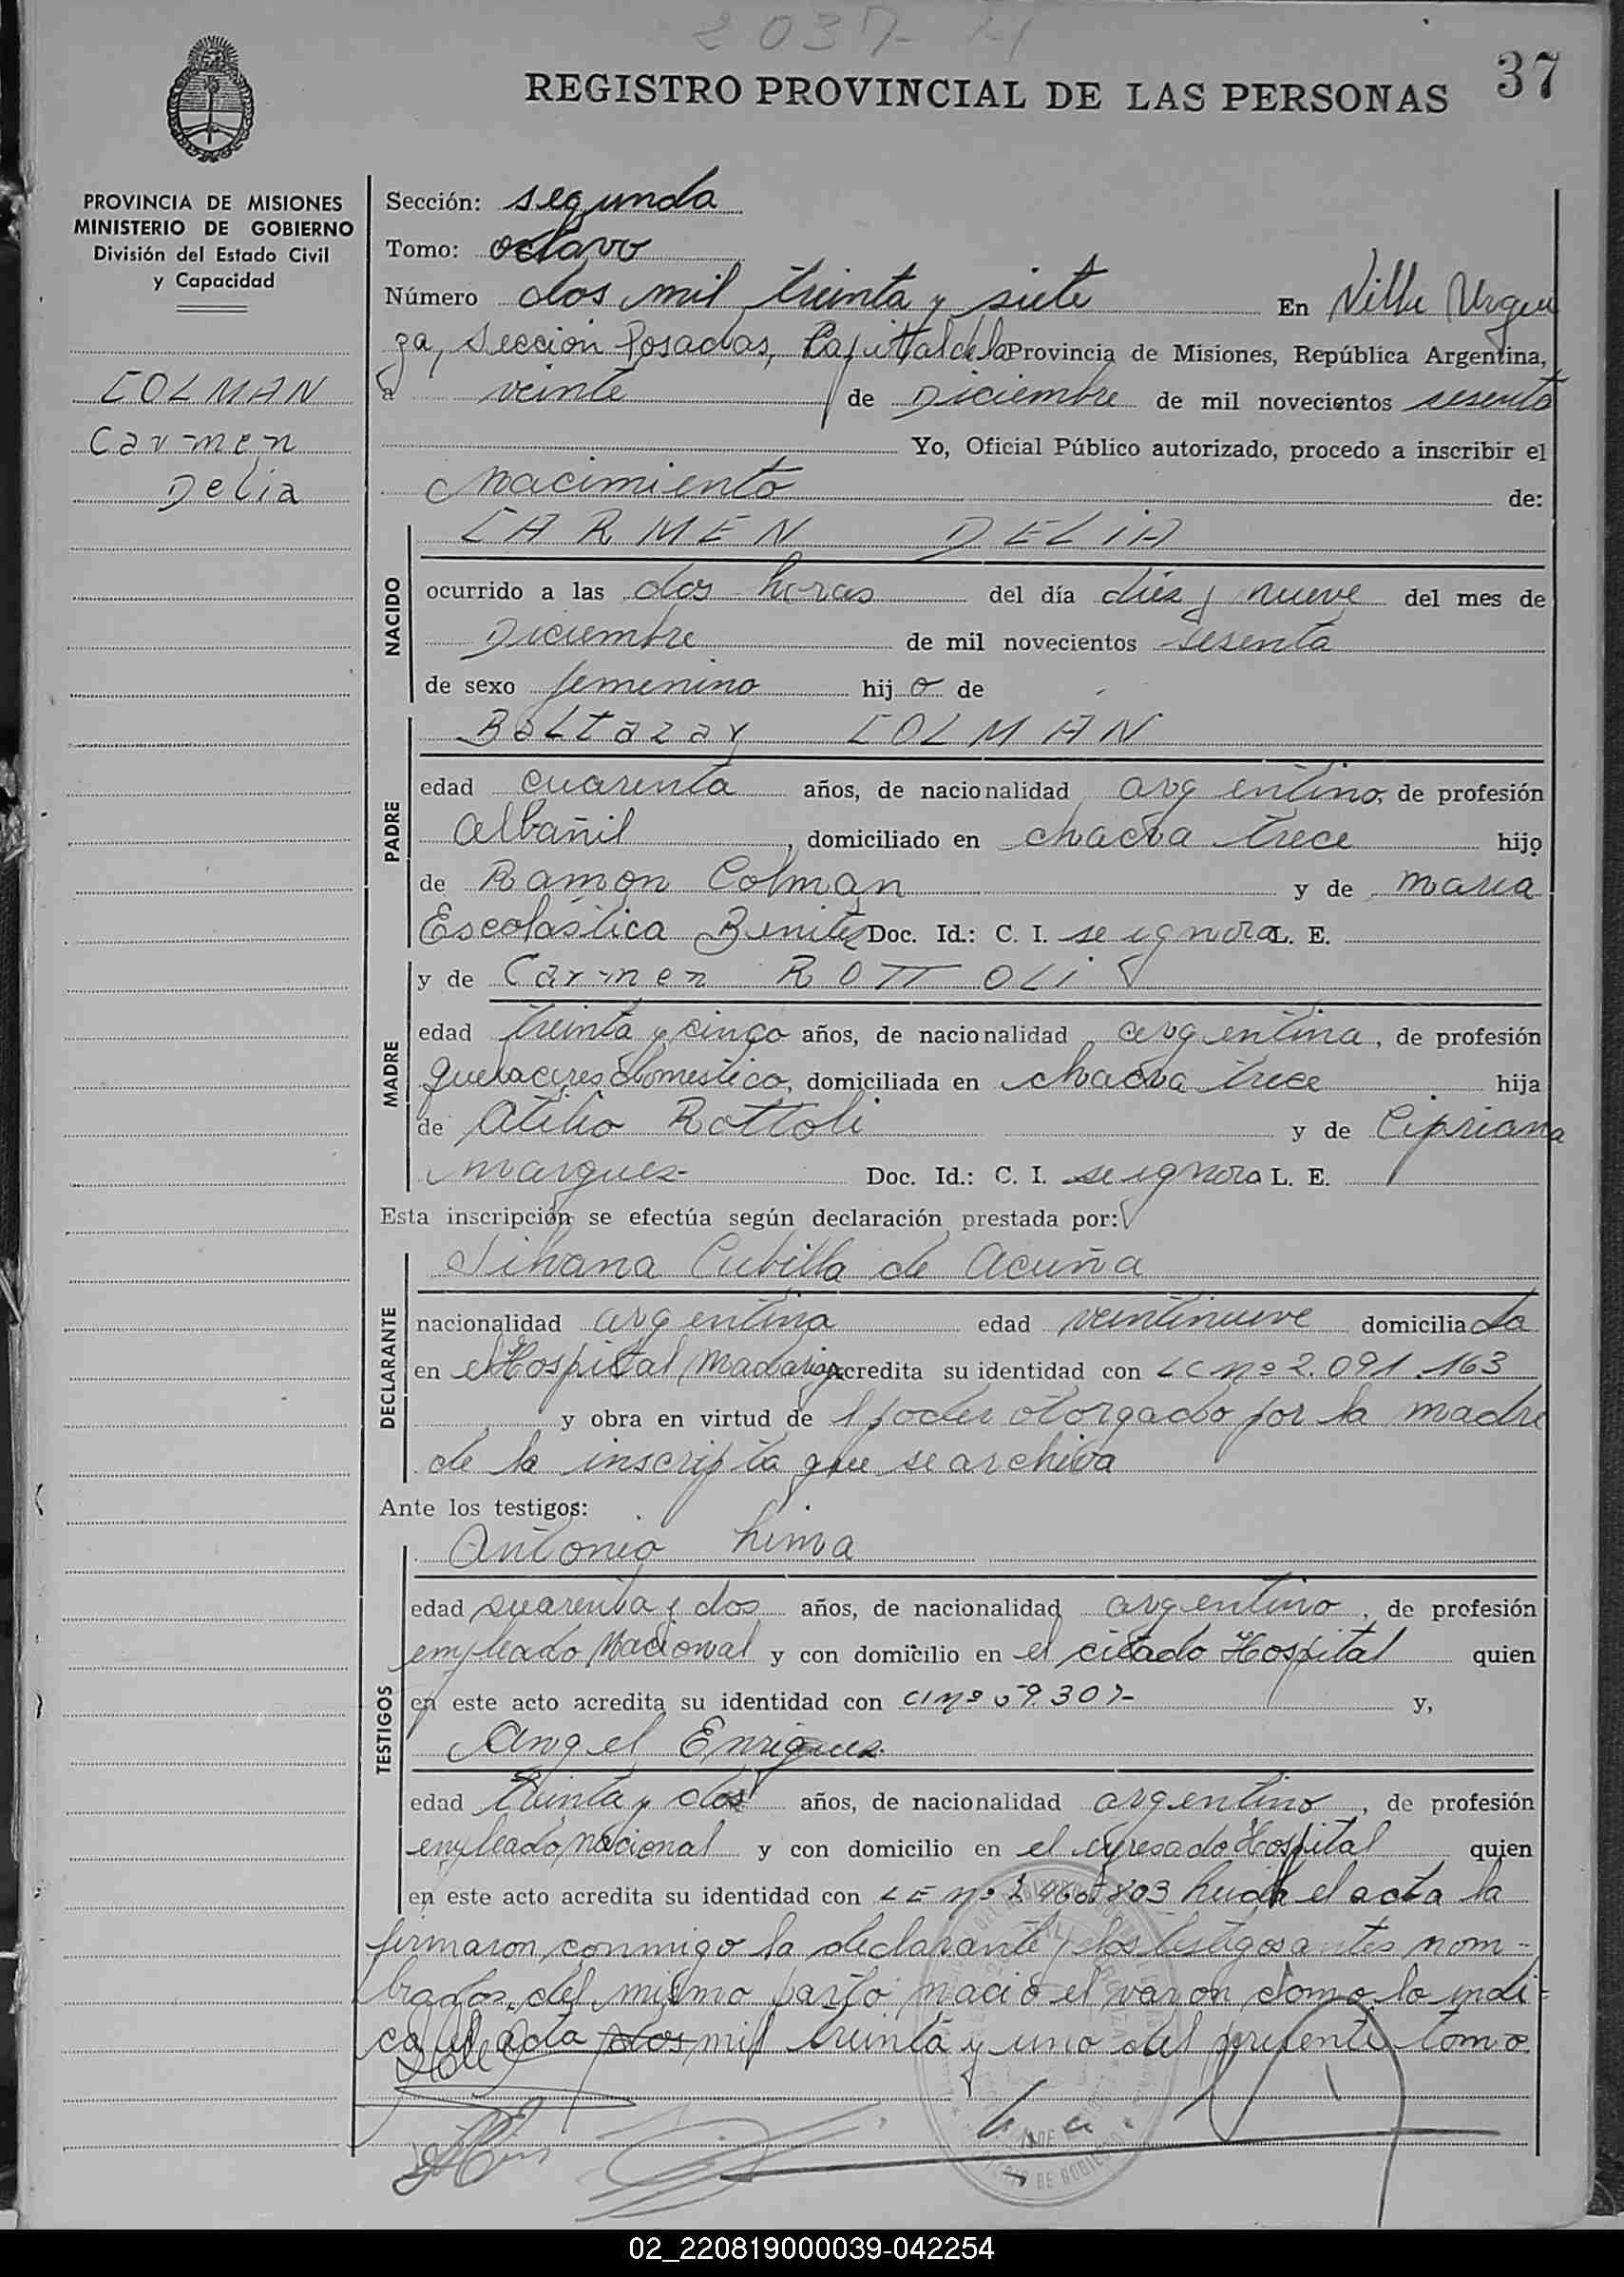 2037-
37
REGISTRO PROVINCIAL DE LAS PERSONAS
PROVINCIA DE MISIONES
MINISTERIO DE GOBIERNO
División del Estado Civil
y Capacidad
COLMAN
Carmen
Delia
Sección: segunda
Tomo: octavo
Número dos mil treinta y siete En Villa Urqui
za, Sección Posadas, Capital de la Provincia de Misiones, República Argentina,
a veinte de Diciembre de mil novecientos sesenta
Yo, Oficial Público autorizado, procedo a inscribir el
nacimiento de:
NACIDO
CARMEN DELIA
ocurrido a las dos horas del día diez y nueve del mes de
Diciembre de mil novecientos sesenta
de sexo femenino hijo de
PADRE
Baltazar COLMAN
edad cuarenta años, de nacionalidad argentino, de profesión
albañil, domiciliado en chacra trece hijo
de Ramon Colman y de Maria
Escolástica Benitez Doc. Id.: C. I. se ignora L. E.
MADRE
y de Carmen ROTTOLI
edad treinta y cinco años, de nacionalidad argentina, de profesión
quehaceres domestico, domiciliada en chacra trece hija
de Atilio Rottoli y de Cipriana
Marquez- Doc. Id.: C. I. se ignora L. E.
Esta inscripción se efectúa según declaración prestada por:
DECLARANTE
Silvana Cubilla de Acuña
nacionalidad argentina edad veintinueve domiciliada
en el Hospital Madariaga acredita su identidad con LC nº 2.091.163
y obra en virtud del poder otorgado por la madre
de la inscripta que se archiva
Ante los testigos:
TESTIGOS
Antonio Lima
edad cuarenta y dos años, de nacionalidad argentino, de profesión
empleado Nacional y con domicilio en el citado Hospital quien
en este acto acredita su identidad con CI nº y,
Angel Enriquez.
edad treinta y dos años, de nacionalidad argentino, de profesión
empleado nacional y con domicilio en el expresado Hospital quien
en este acto acredita su identidad con LE nº leida el acta la
firmaron conmigo la declarante y los testigos antes nom-
brados, del mismo parto nació el varon como lo indi-
ca el acta dos mil treinta y uno del presente tomo.
02_220819000039-042254